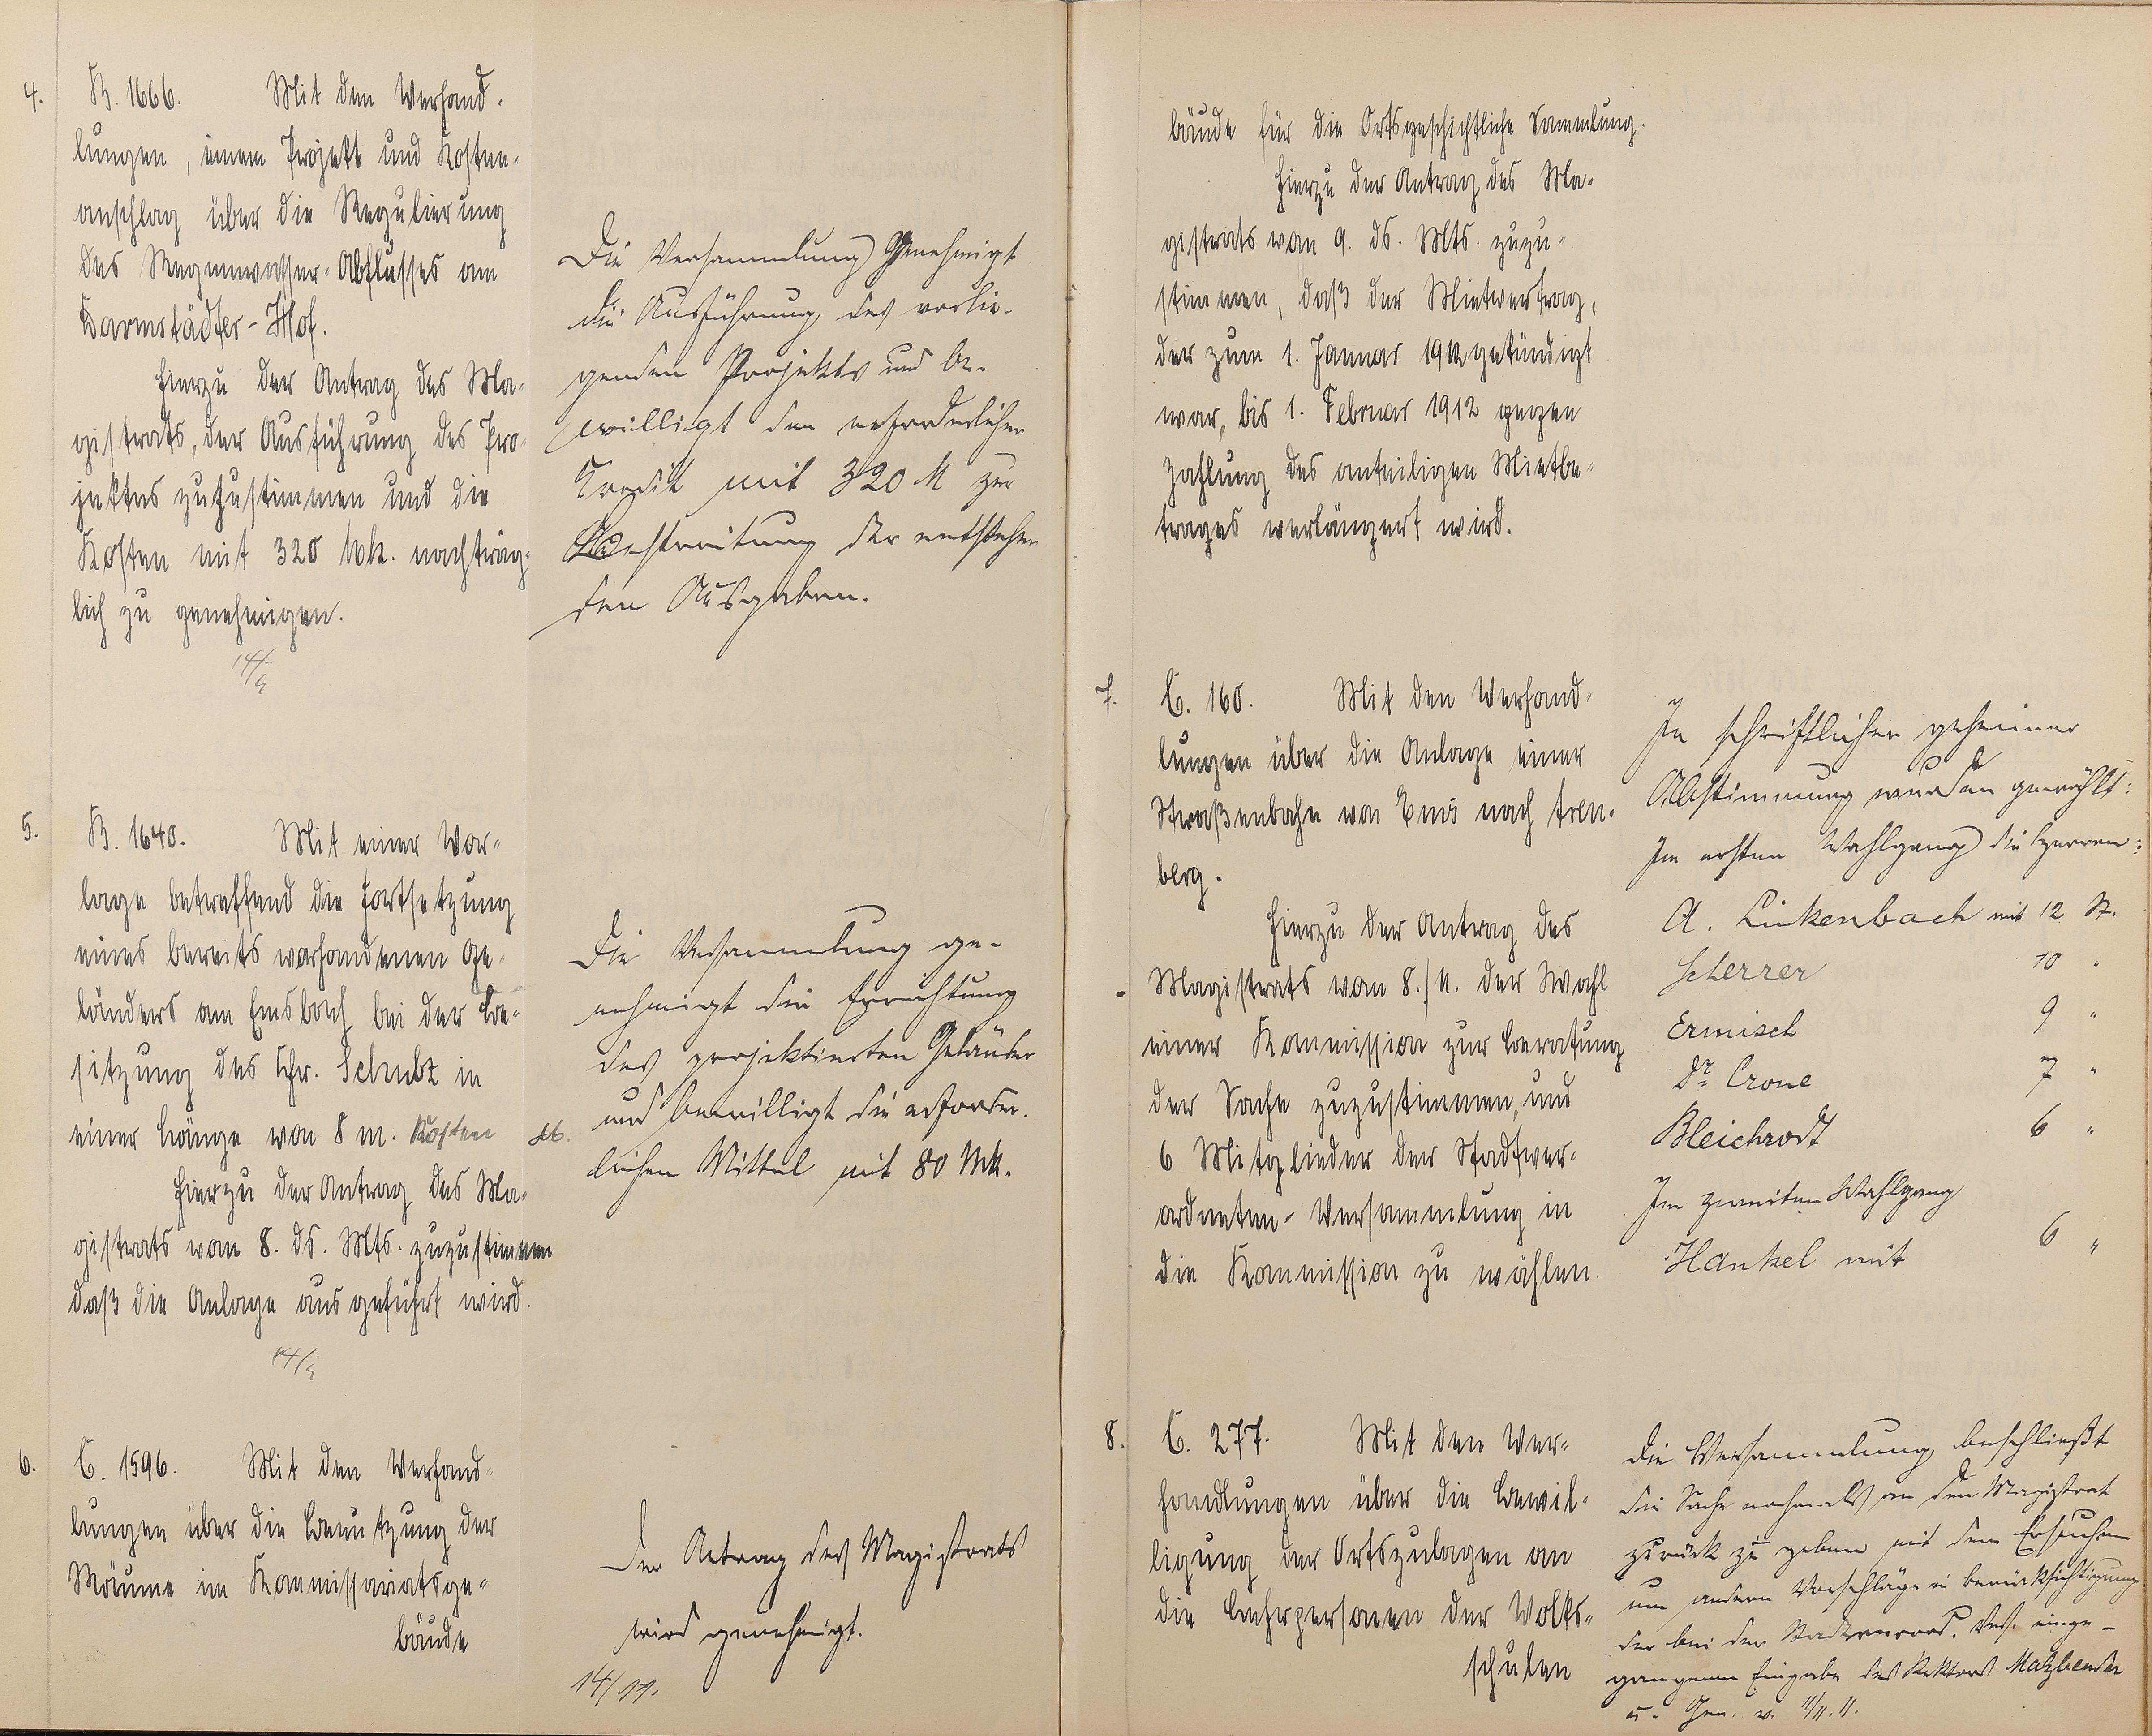 4. B. 1666. Mit den Verhand-
lungen, einem Projekt und Kosten-
anschlag über die Regulierung
des Regenwasser-Abflusses am
Darmstädter-Hof.
Hierzu der Antrag des Ma-
gistrats, der Ausführung des Pro-
jektes zuzustimmen und die
Kosten mit 320 Mk. nachträg-
lich zu genehmigen.
Die Versammlung genehmigt
die Ausführung des vorlie-
genden Projekts und be-
willigt den erforderlichen
Kredit mit 320 M zur
Bestreitung der entstehen
den Ausgaben.
5. B. 1640. Mit einer Vor-
lage betreffend die Fortsetzung
eines bereits vorhandenen Ge-
länders am Emsbach bei der Be-
sitzung des Chr. Schubz in
einer Länge von 8 m. Kosten
Hierzu der Antrag des Ma-
gistrats vom 8. ds. Mts. zuzustimmen
daß die Anlage ausgeführt wird.
Die Versammlung ge-
nehmigt die Errichtung
des projektierten Geländer
und bewilligt die erforder-
lichen Mittel mit 80 Mk.
6. C. 1596. Mit den Verhand-
lungen über die Benutzung der
Räume im Kommissariatsge-
bäude
Der Antrag des Magistrats
wird genehmigt.
14/11.
bäude für die Ortsgeschichtliche Sammlung.
Hierzu der Antrag des Ma-
gistrats vom 9. ds. Mts. zuzu-
stimmen, daß der Mietvertrag,
der zum 1. Januar 1912 gekündigt
war, bis 1. Februar 1912 gegen
Zahlung des anteiligen Mietbe-
trages verlängert wird.
7. C. 160. Mit den Verhand-
lungen über die Anlage einer
Straßenbahn von Ems nach Aren-
berg.
Hierzu der Antrag des
Magistrats vom 8./11. der Wahl
einer Kommission zur Beratung
der Sache zuzustimmen, und
6 Mitglieder der Stadtver-
ordneten-Versammlung in
die Kommission zu wählen.
In schriftlicher geheimer
Abstimmung wurden gewählt:
Im ersten Wahlgang die Herren:
A. Linkenbach mit 12 St.
Scherrer 10 "
Ermisch 9 "
Dr. Crone 7 "
Bleichrodt 6 "
Im zweiten Wahlgang
Hankel mit 6 "
8. C. 277. Mit den Ver-
handlungen über die Bewil-
ligung der Ortszulagen an
die Lehrpersonen der Volks-
schulen
Die Versammlung beschließt
die Sache nochmals an den Magistrat
zurück zu geben mit dem Ersuchen
um andere Vorschläge in Berücksichtigung
der bei der Stadtverord. Vers. einge-
gangenen Eingabe des Rektors Matzbender
u. Gen. v. 11/11. 11.